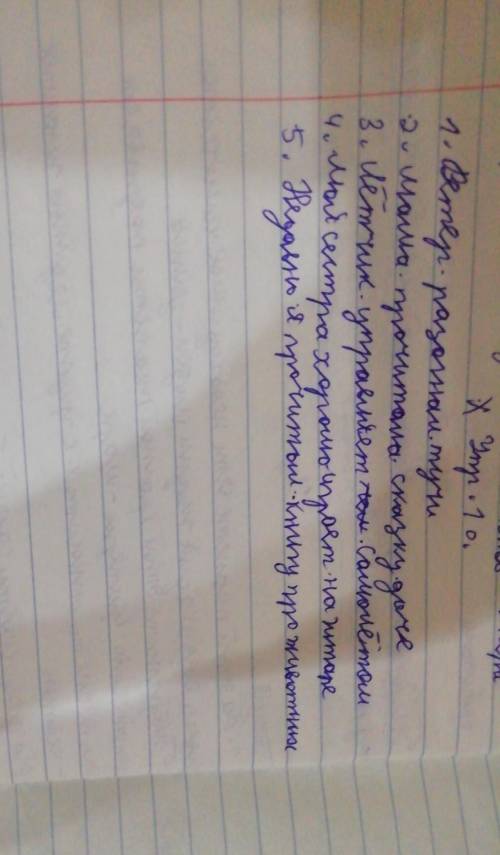 Упр. 10.
1. Ветер. разогнал. тучи
2. Мама. прочитала. сказку. даче
3. Лётчик. управляет. самолётом
4. Мой сетра хорошо играет. на гитаре
5. Недавно я прочитал. книгу про животных